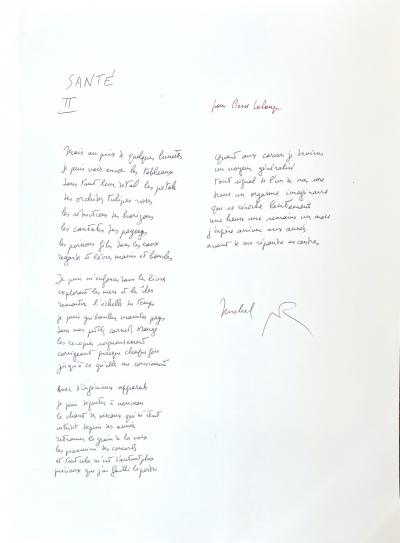 SANTÉ
II
pour Pierre
Mais au prix de quelques lunettes
je puis voir encor les tableaux
dans tout leur détail les pétales
des orchidées tulipes roses
les séductions des horizons
les cantates des paysages
les poissons filer dans les eaux
regards et lèvres mains et boucles
Je puis m'enfoncer dans les livres
explorant les mers et les îles
remonter l'échelle des temps
je puis gribouiller maintes pages
dans mes petits carnets orange
les recopier soigneusement
corrigeant presque chaque fois
jusqu'à ce qu'elles me conviennent
Avec d'ingénieux appareils
je puis écouter à nouveau
le chant des oiseaux qui m'était
interdit depuis des années
retrouver le grain de la voix
les pianissimi des concerts
et tout cela m'est d'autant plus
précieux que j'ai failli le perdre
Quant aux caresses je deviens
un voyeur généralisé
tout signal de l'un de mes sens
dans un orgasme imaginaire
qui se révèle lentement
une heure une semaine un mois
j'espère arriver aux années
avant de me répandre en cendres
Michel